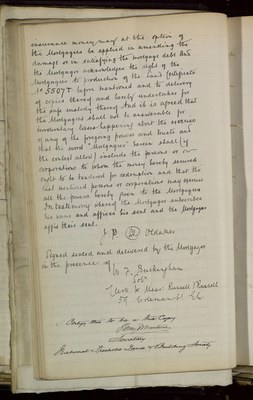 insurance money may at the option of
the Mortgagees be applied in amending the
damage or in satisfying the mortgage debt And
the Mortgagor acknowledges the right of the
Mortgagees to production of the Land Certificate
No 5507 T before mentioned and to delivery
of copies thereof and hereby undertakes for
the safe custody thereof And it is agreed that
the Mortgagees shall not be answerable for
involuntary losses happening about the exercise
of any of the foregoing powers and trusts and
that the word "Mortgagees" herein shall (if
the context allow) include the persons or
corporations to whom the money hereby secured
ought to be tendered for redemption and that the
last mentioned persons or corporations may exercise
all the powers hereby given to the Mortgagees
In testimony whereof the Mortgagor subscribes
his name and affixes his seal and the Mortgagees
affix their seal.
J. P. Oldaker
Signed sealed and delivered by the Mortgagor
in the presence of
W. F. Buckingham
Solr
Clerk to Messrs Russell & Russell
59 Coleman St E.C.
I certify this to be a true Copy
Secretary
National Freehold Land & Building Society